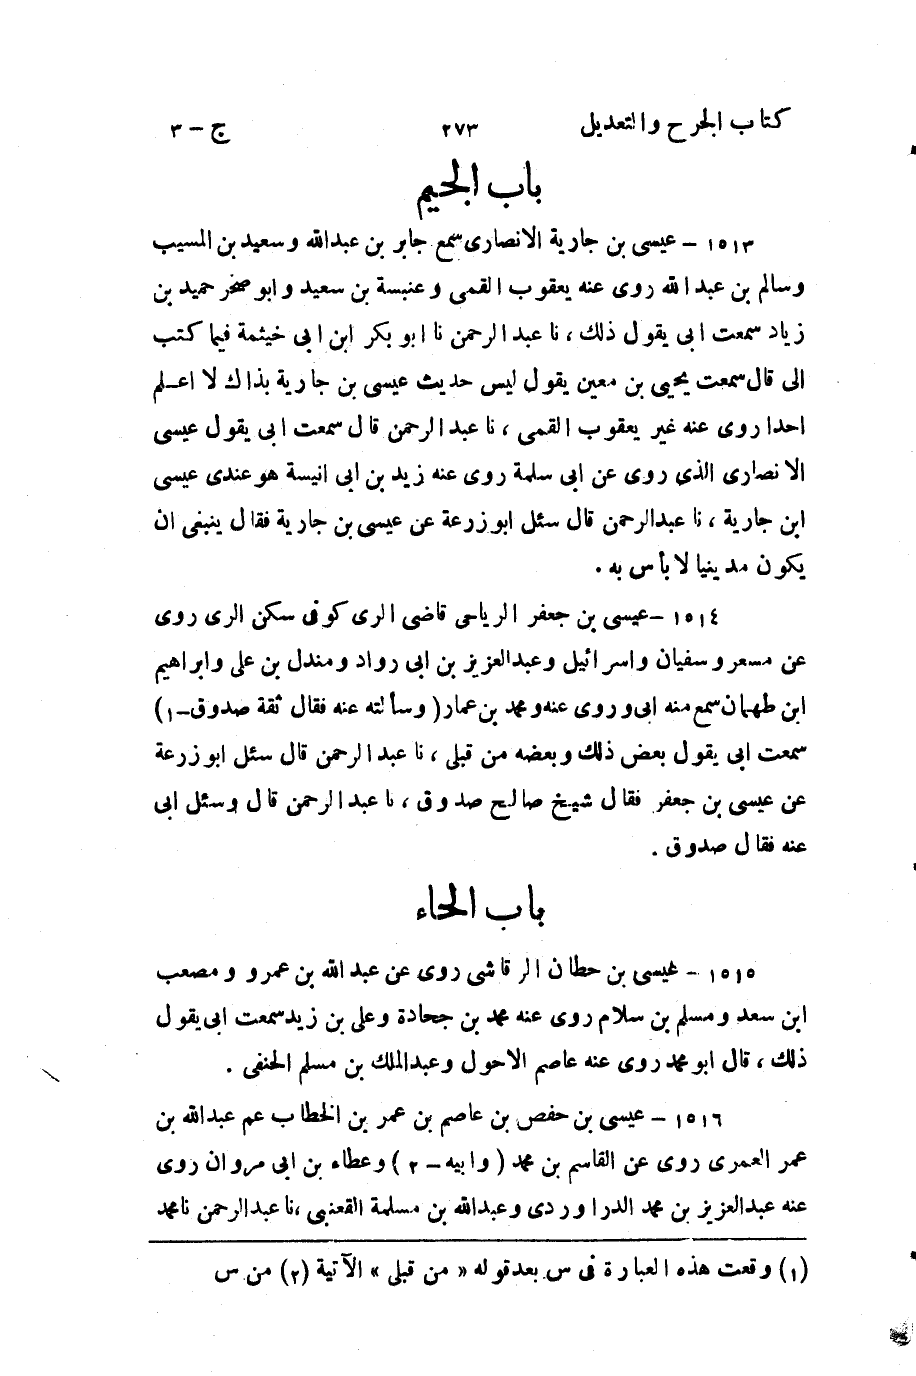 كتاب الجرح والتعديل ٢٧٣ ج – ٣
باب الجيم
١٥١٣ – عيسى بن جارية الانصارى سمع جابر بن عبدالله وسعيد بن المسيب
وسالم بن عبد الله روى عنه يعقوب القمى وعنبسة بن سعيد وابو صخر حميد بن
زياد سمعت ابى يقول ذلك ، نا عبد الرحمن نا ابو بكر ابن ابى خيثمة فيما كتب
الى قال سمعت يحيى بن معين يقول ليس حديث عيسى بن جارية بذاك لا اعـلم
احدا روى عنه غير يعقوب القمى ، نا عبد الرحمن قال سمعت ابى يقول عيسى
الانصارى الذى روى عن ابى سلمة روى عنه زيد بن ابى انيسة هو عندى عيسى
ابن جارية ، نا عبدالرحمن قال سئل ابو زرعة عن عيسى بن جارية فقال ينبغى ان
يكون مدينيا لا بأس به .
١٥١٤ – عيسى بن جعفر الرياحى قاضى الرى كوفى سكن الرى روى
عن مسعر وسفيان واسرائيل وعبدالعزيز بن ابى رواد ومندل بن على وابراهيم
ابن طهمان سمع منه ابى وروى عنه ومحمد بن عمار ( وسألته عنه فقال ثقة صدوق – ١ )
سمعت ابى يقول بعض ذلك وبعضه من قبلى ، نا عبد الرحمن قال سئل ابو زرعة
عن عيسى بن جعفر فقال شيخ صالح صدوق ، نا عبد الرحمن قال وسئل ابى
عنه فقال صدوق .
باب الحاء
١٥١٥ – عيسى بن حطان الرقاشى روى عن عبد الله بن عمرو ومصعب
ابن سعد ومسلم بن سلام روى عنه محمد بن جحادة وعلى بن زيد سمعت ابى يقول
ذلك ، قال ابو محمد روى عنه عاصم الاحول وعبدالملك بن مسلم الحنفى .
١٥١٦ – عيسى بن حفص بن عاصم بن عمر بن الخطاب عم عبدالله بن
عمر العمرى روى عن القاسم بن محمد ( وابيه – ٢ ) وعطاء بن ابى مروان روى
عنه عبدالعزيز بن محمد الدراوردى وعبدالله بن مسلمة القعنبى ، نا عبدالرحمن نا محمد
(١) وقعت هذه العبارة فى س بعد قوله « من قبلى » الآتية (٢) من س